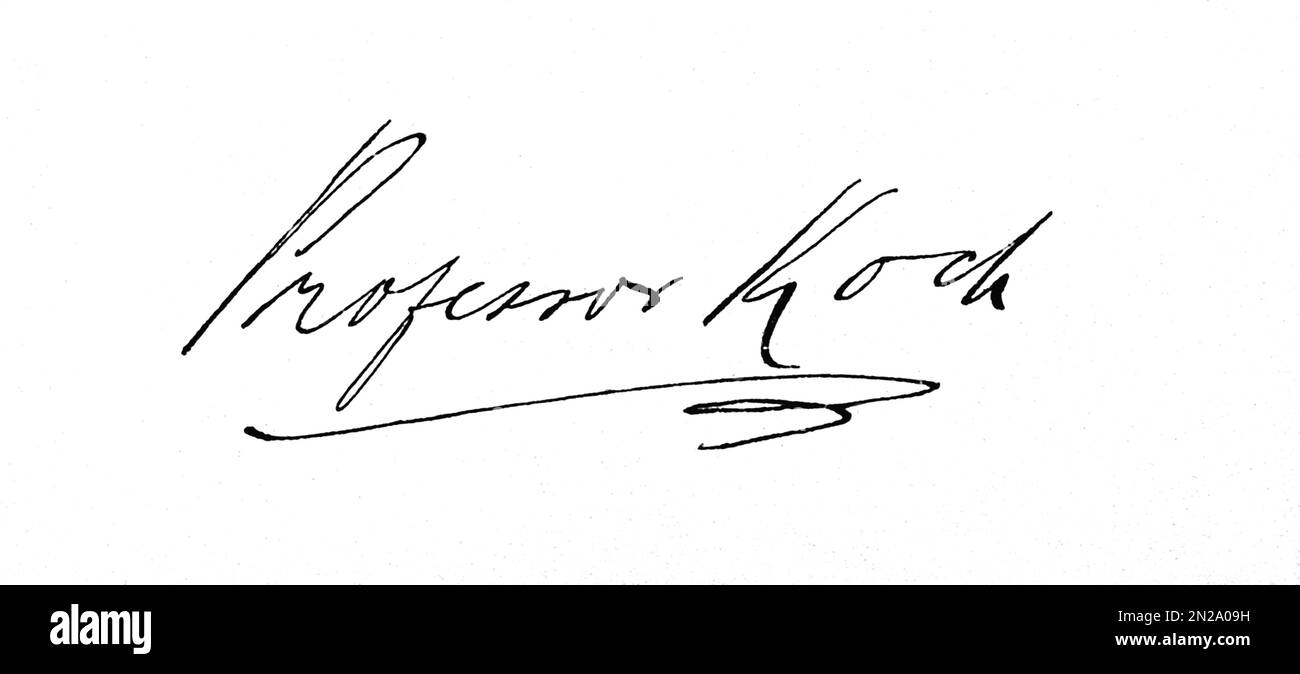 Professor Koch
alamy
Image ID: 2N2A09H
www.alamy.com